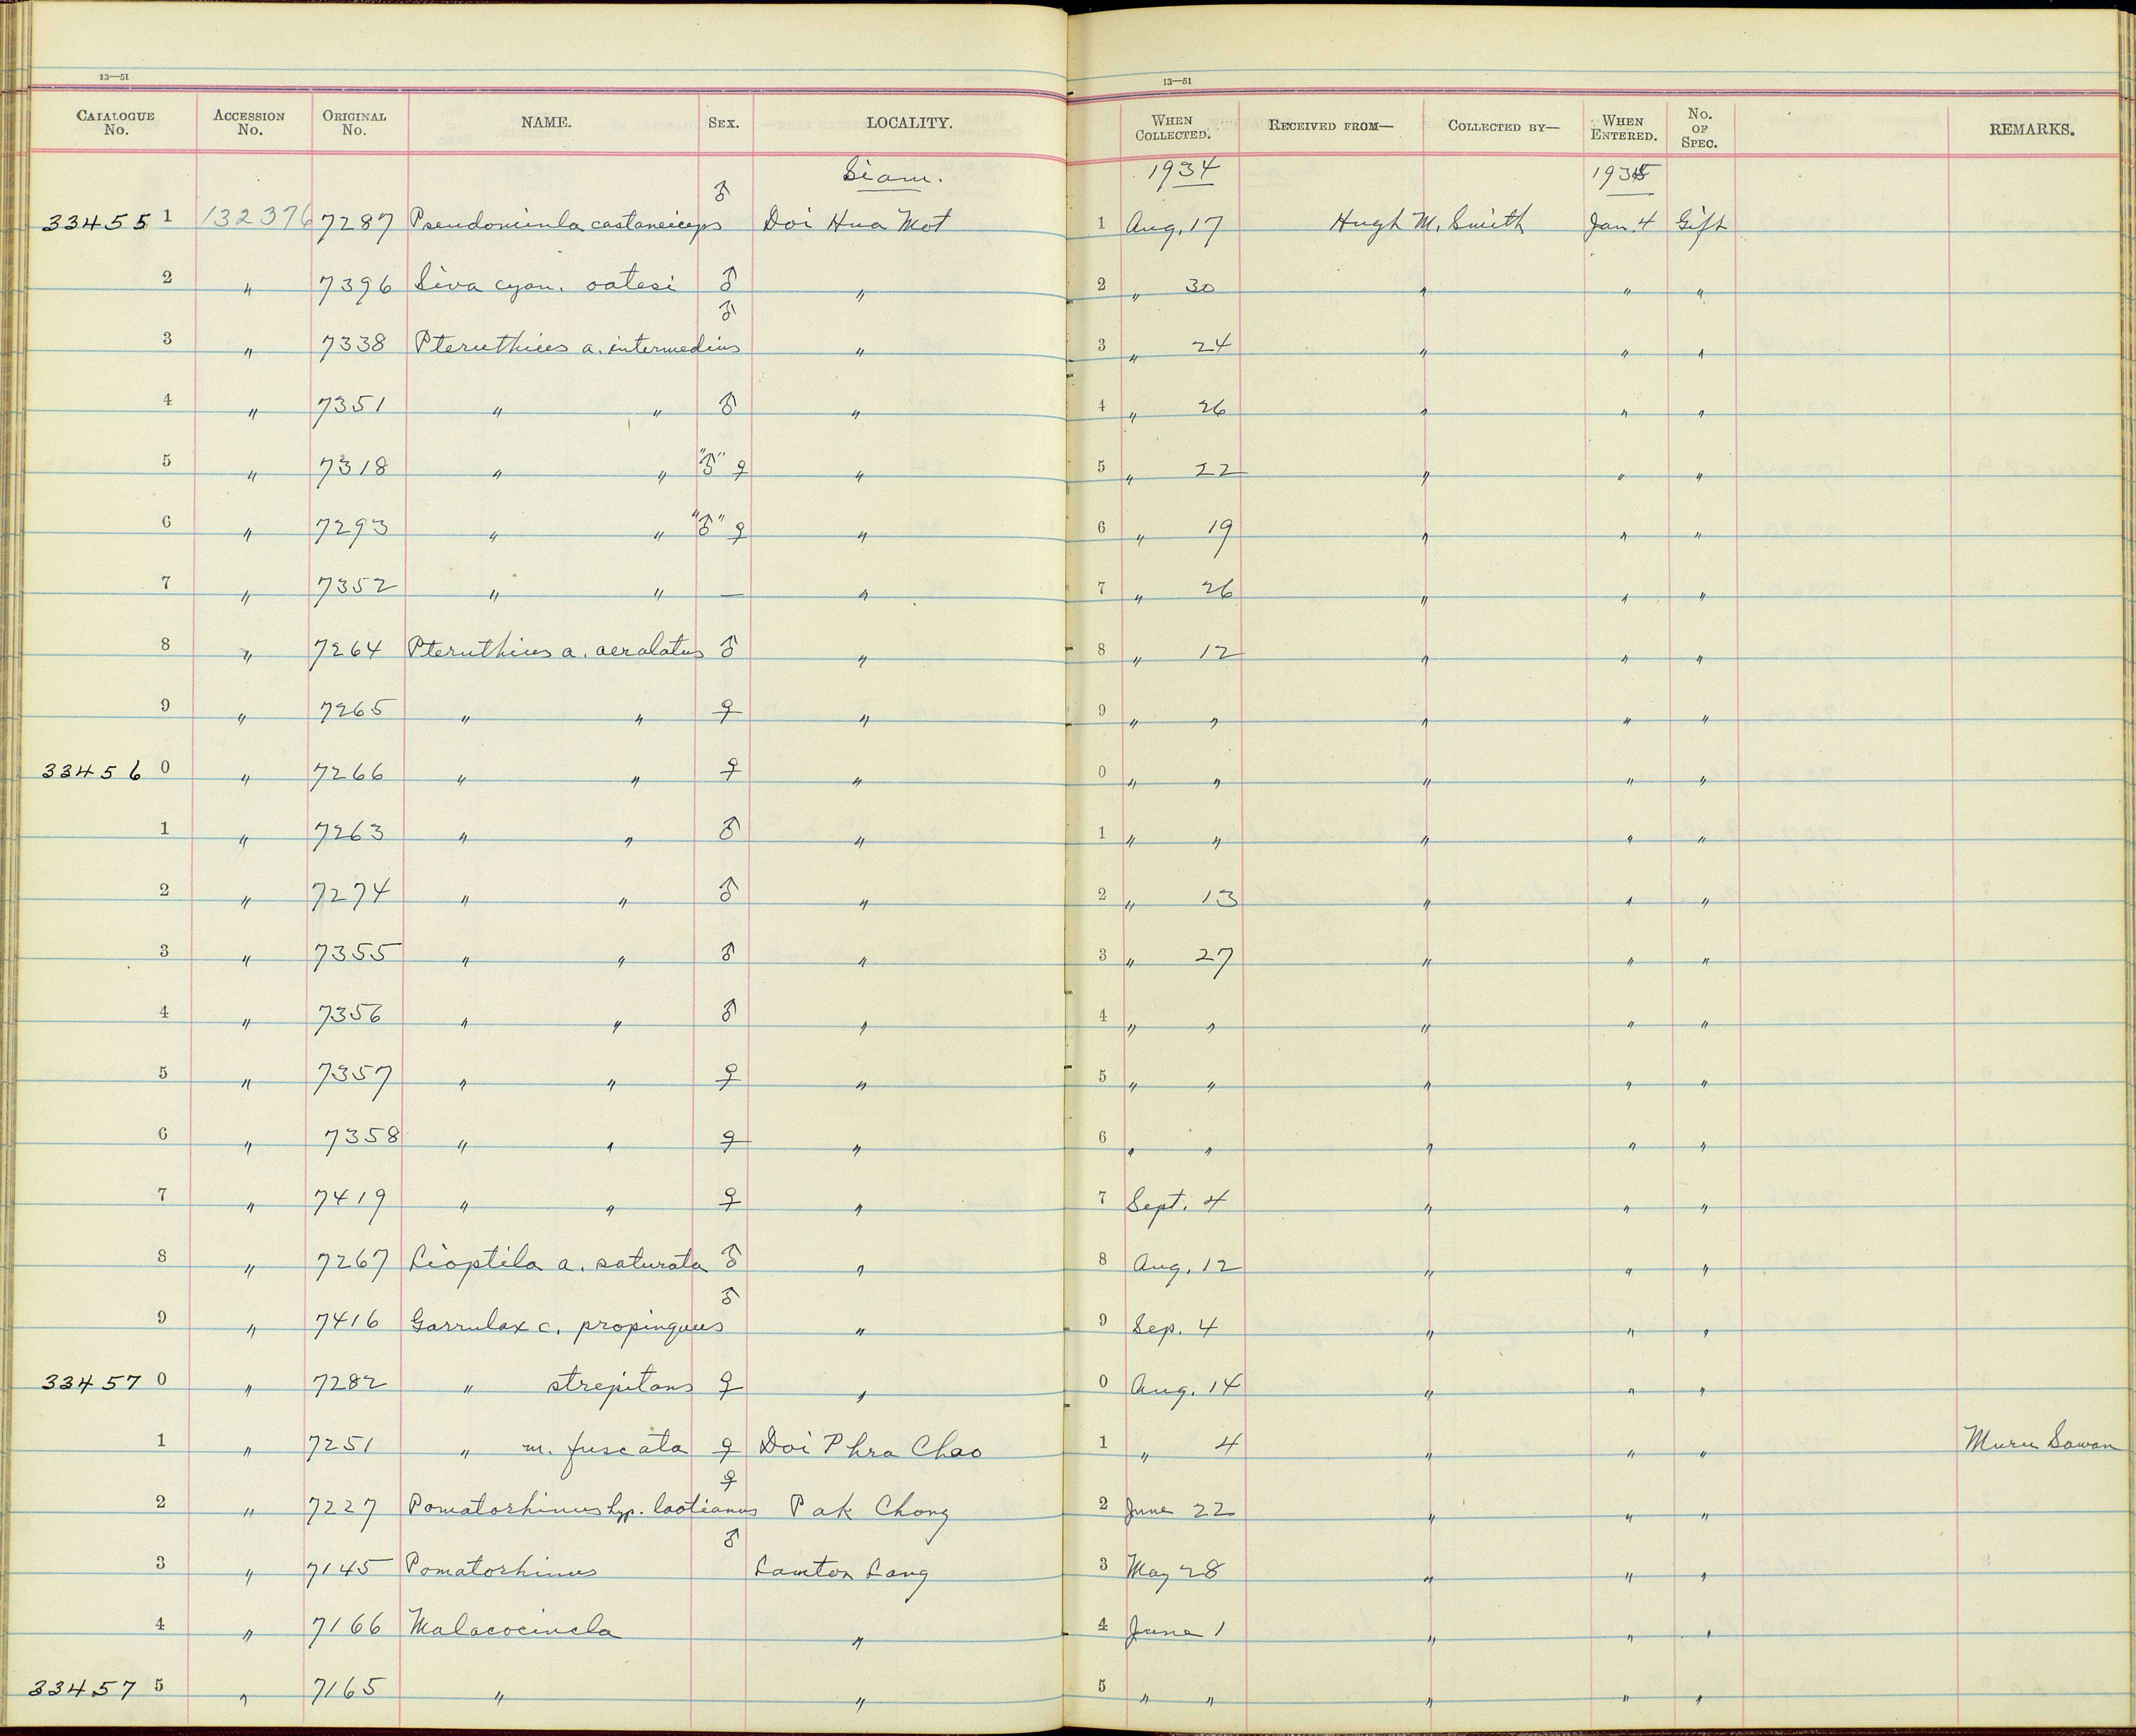 13—51 13—51
CATALOGUE No. ACCESSION No. ORIGINAL No. NAME. SEX. LOCALITY. WHEN COLLECTED. RECEIVED FROM— COLLECTED BY— WHEN ENTERED. No. OF SPEC. REMARKS.
Siam. 1934 1935
33455 1 132376 7287 Pseudominla castaneiceps ♂ Doi Hua Mot 1 Aug. 17 Hugh M. Smith Jan. 4 Gift
2 " 7396 Siva cyan. oatesi ♂ " 2 " 30 " " "
3 " 7338 Pteruthius a. intermedius ♂ " 3 " 24 " " "
4 " 7351 " " ♂ " 4 " 26 " " "
5 " 7318 " " "♂" ♀ " 5 " 22 " " "
6 " 7293 " " "♂" ♀ " 6 " 19 " " "
7 " 7352 " " — " 7 " 26 " " "
8 " 7264 Pteruthius a. aeralatus ♂ " 8 " 12 " " "
9 " 7265 " " ♀ " 9 " " " " "
33456 0 " 7266 " " ♀ " 0 " " " " "
1 " 7263 " " ♂ " 1 " " " " "
2 " 7274 " " ♂ " 2 " 13 " " "
3 " 7355 " " ♂ " 3 " 27 " " "
4 " 7356 " " ♂ " 4 " " " " "
5 " 7357 " " ♀ " 5 " " " " "
6 " 7358 " " ♀ " 6 " " " " "
7 " 7419 " " ♀ " 7 Sept. 4 " " "
8 " 7267 Lioptila a. saturata ♂ " 8 Aug. 12 " " "
9 " 7416 Garrulax c. propinquus ♂ " 9 Sep. 4 " " "
33457 0 " 7282 " strepitans ♀ " 0 Aug. 14 " " "
1 " 7251 " m. fuscata ♀ Doi Phra Chao 1 " 4 " " " Muru Sawan
2 " 7227 Pomatorhinus hyp. laotianus ♀ Pak Chong 2 June 22 " " "
3 " 7145 Pomatorhinus ♂ Lamton Lang 3 May 28 " " "
4 " 7166 Malacocincla " 4 June 1 " " "
33457 5 " 7165 " " 5 " " " " "